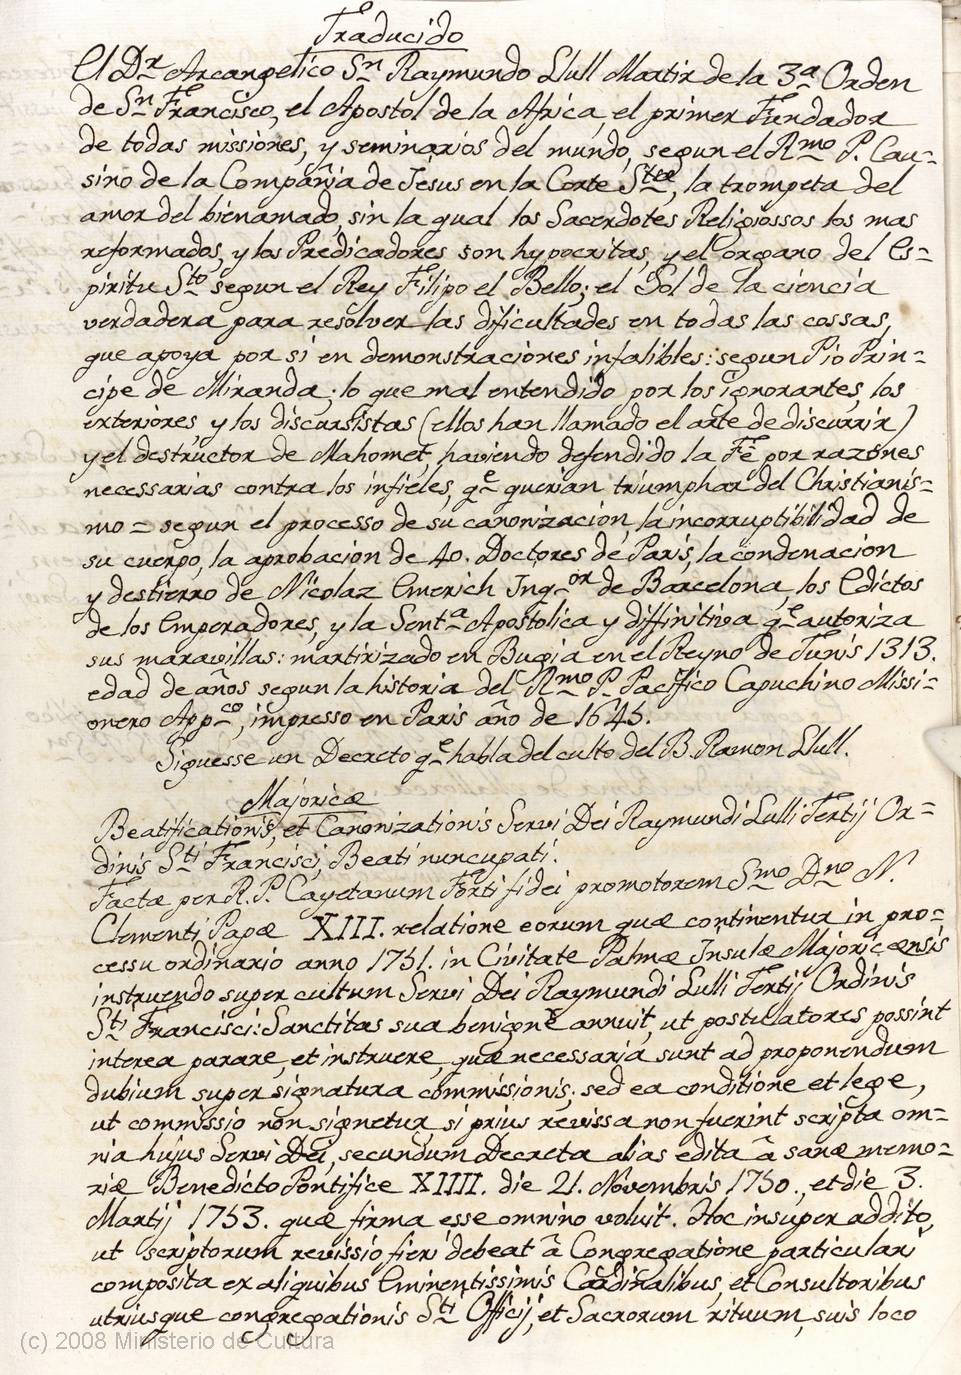 Traducido
El Dr Arcangelico Sn Raymundo Llull Martir de la 3a Orden
de Sn Francisco, el Apostol de la Africa, el primer Fundador
de todas missiones, y seminarios del mundo, segun el Rmo P. Cau=
sino de la Compañia de Jesus en la Corte, la trompeta del
amor del bienamado, sin la qual los Sacerdotes Religiossos los mas
reformados, y los Predicadores son hypocritas, y el organo del Es=
piritu Sto segun el Rey Filipo el Bello; el Sol de la ciencia
verdadera para resolver las dificultades en todas las cossas,
que apoya por si en demonstraciones infalibles: segun Pio Prin=
cipe de Miranda; lo que mal entendido por los ignorantes, los
exteriores, y los discursistas (ellos han llamado el arte de discurrir)
y el destructor de Mahomet, haviendo defendido la Fe por razones
necessarias contra los infieles, qe querian triumphar del Christianis=
mo = segun el processo de su canonizacion, la incorruptibilidad de
su cuerpo, la aprobacion de 40. Doctores de Paris, la condenacion
y destierro de Nicolaz Emerich Inqor de Barcelona, los Edictos
de los Emperadores, y la Senta Apostolica y diffinitiva qe autoriza
sus maravillas: martirizado en Bugia en el Reyno de Tunis 1313.
edad de años segun la historia del Rmo P. Pacifico Capuchino Missi=
onero Appco, impresso en Paris año de 1645.
Siguesse un Decreto qe habla del culto del B. Ramon Llull.
Majoricæ
Beatificationis, et Canonizationis Servi Dei Raymundi Lulli Tertij Or=
dinis Sti Francisci, Beati nuncupati.
Factæ per R. P. Cayetanum Forti fidei promotorem Smo Dno N.
Clementi Papæ XIII. relatione eorum quæ continentur in pro=
cessu ordinario anno 1751. in Civitate Palmæ Insulæ Majoricæensis
instruendo super cultum Servi Dei Raymundi Lulli Tertij Ordinis
Sti Francisci: Sanctitas sua benigne annuit, ut postulatores possint
interea parare, et instruere, quæ necessaria sunt ad proponendum
dubium super signatura commissionis; sed ea conditione et lege,
ut commissio non signetur si prius revissa non fuerint scripta om=
nia hujus Servi Dei, secundum Decreta alias edita â sanæ memo=
riæ Benedicto Pontifice XIIII. die 21. Novembris 1750., et die 3.
Martij 1753. quæ firma esse omnino voluit. Hoc insuper addito,
ut scriptorum revissio fieri debeat â Congregatione particulari
composita ex aliquibus Eminentissimis Cardinalibus, et Consultoribus
utriusque congregationis Sti Officij, et Sacrorum rituum, suis loco
(c) 2008 Ministerio de Cultura